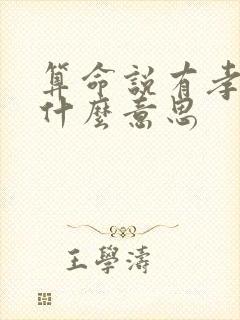 算命說有孝
什麼意思
王學濤